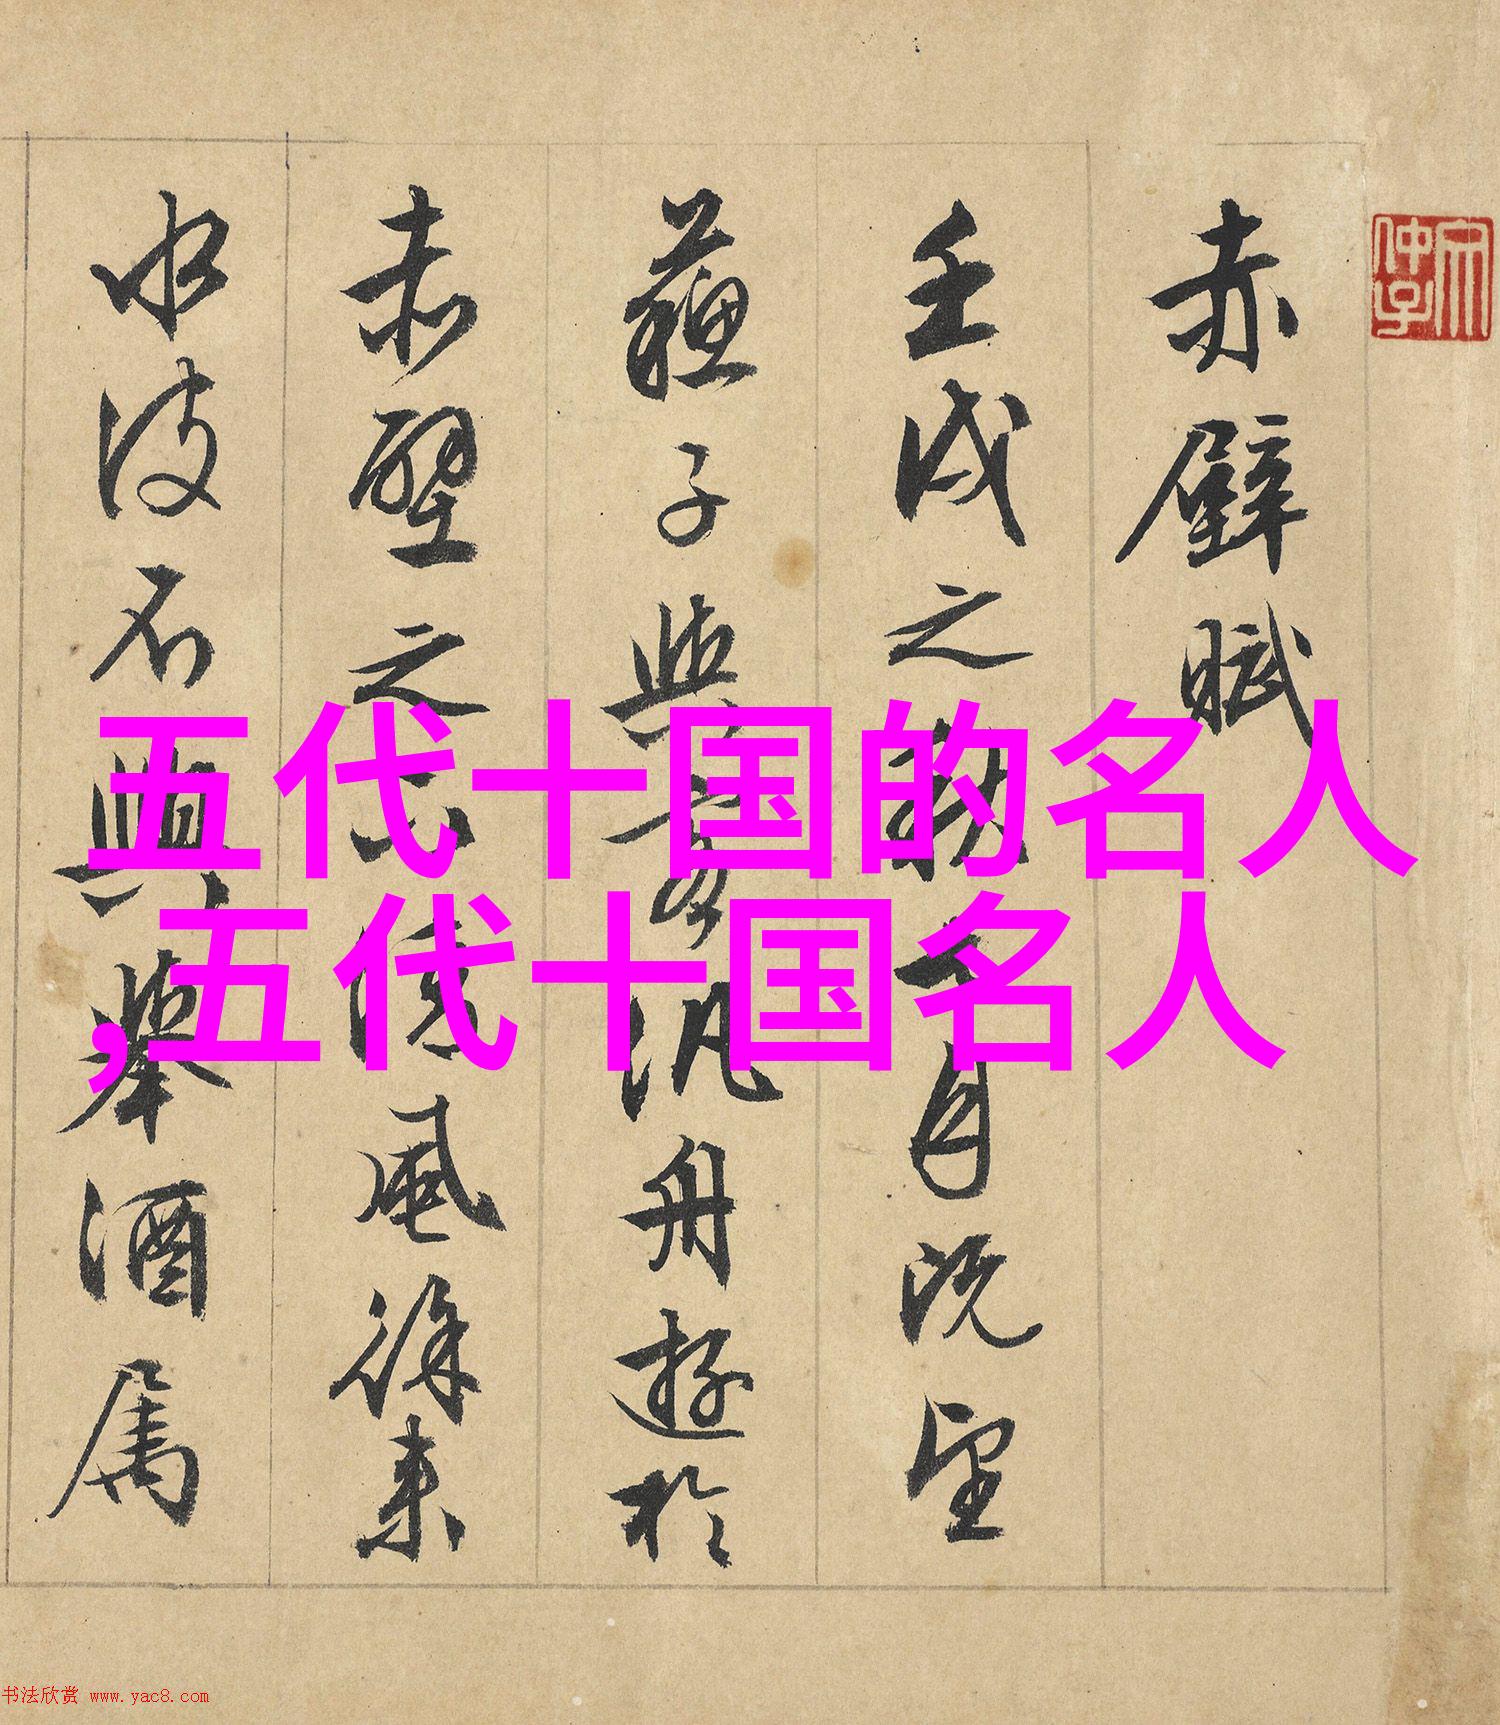 赤壁賦
壬戌之秋七月既望
蘇子與客汎舟遊於
赤壁之下清風徐来
水波不興舉酒属
五代十国的名人
,五代十国名人
书法欣赏 www.yac8.com